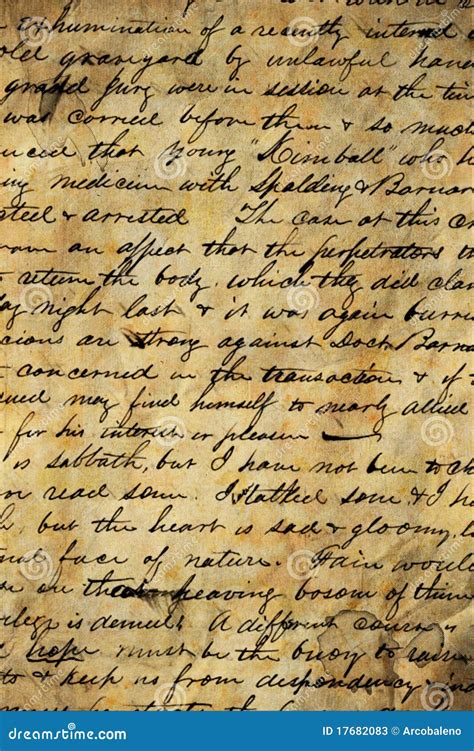 Exhumination of a recently interred
old graveyard by unlawful hand
grand Jury were in session at the tim
was carried before them & so much
nced that young "Kimball" who h
ing medicine with Spalding & Barnar
steel & arrested The case at this c
was an affect that the perpetrators
return the body. which they did clan
ay night last & it was again burri
cions are strong against Doct. Barna
concerned in the transaction & if
cued may find himself to nearly allied
for his interest or pleasure
is sabbath, but I have not been to ch
read some. I talked some & I h
but the heart is sad & gloomy,
nal face of nature. Fain would
on the heaving bosom of thin
vilege is denied. A different course
hope must be the buoy to raise
& keep us from despondency &
dreamstime.com
ID 17682083 © Arcobaleno